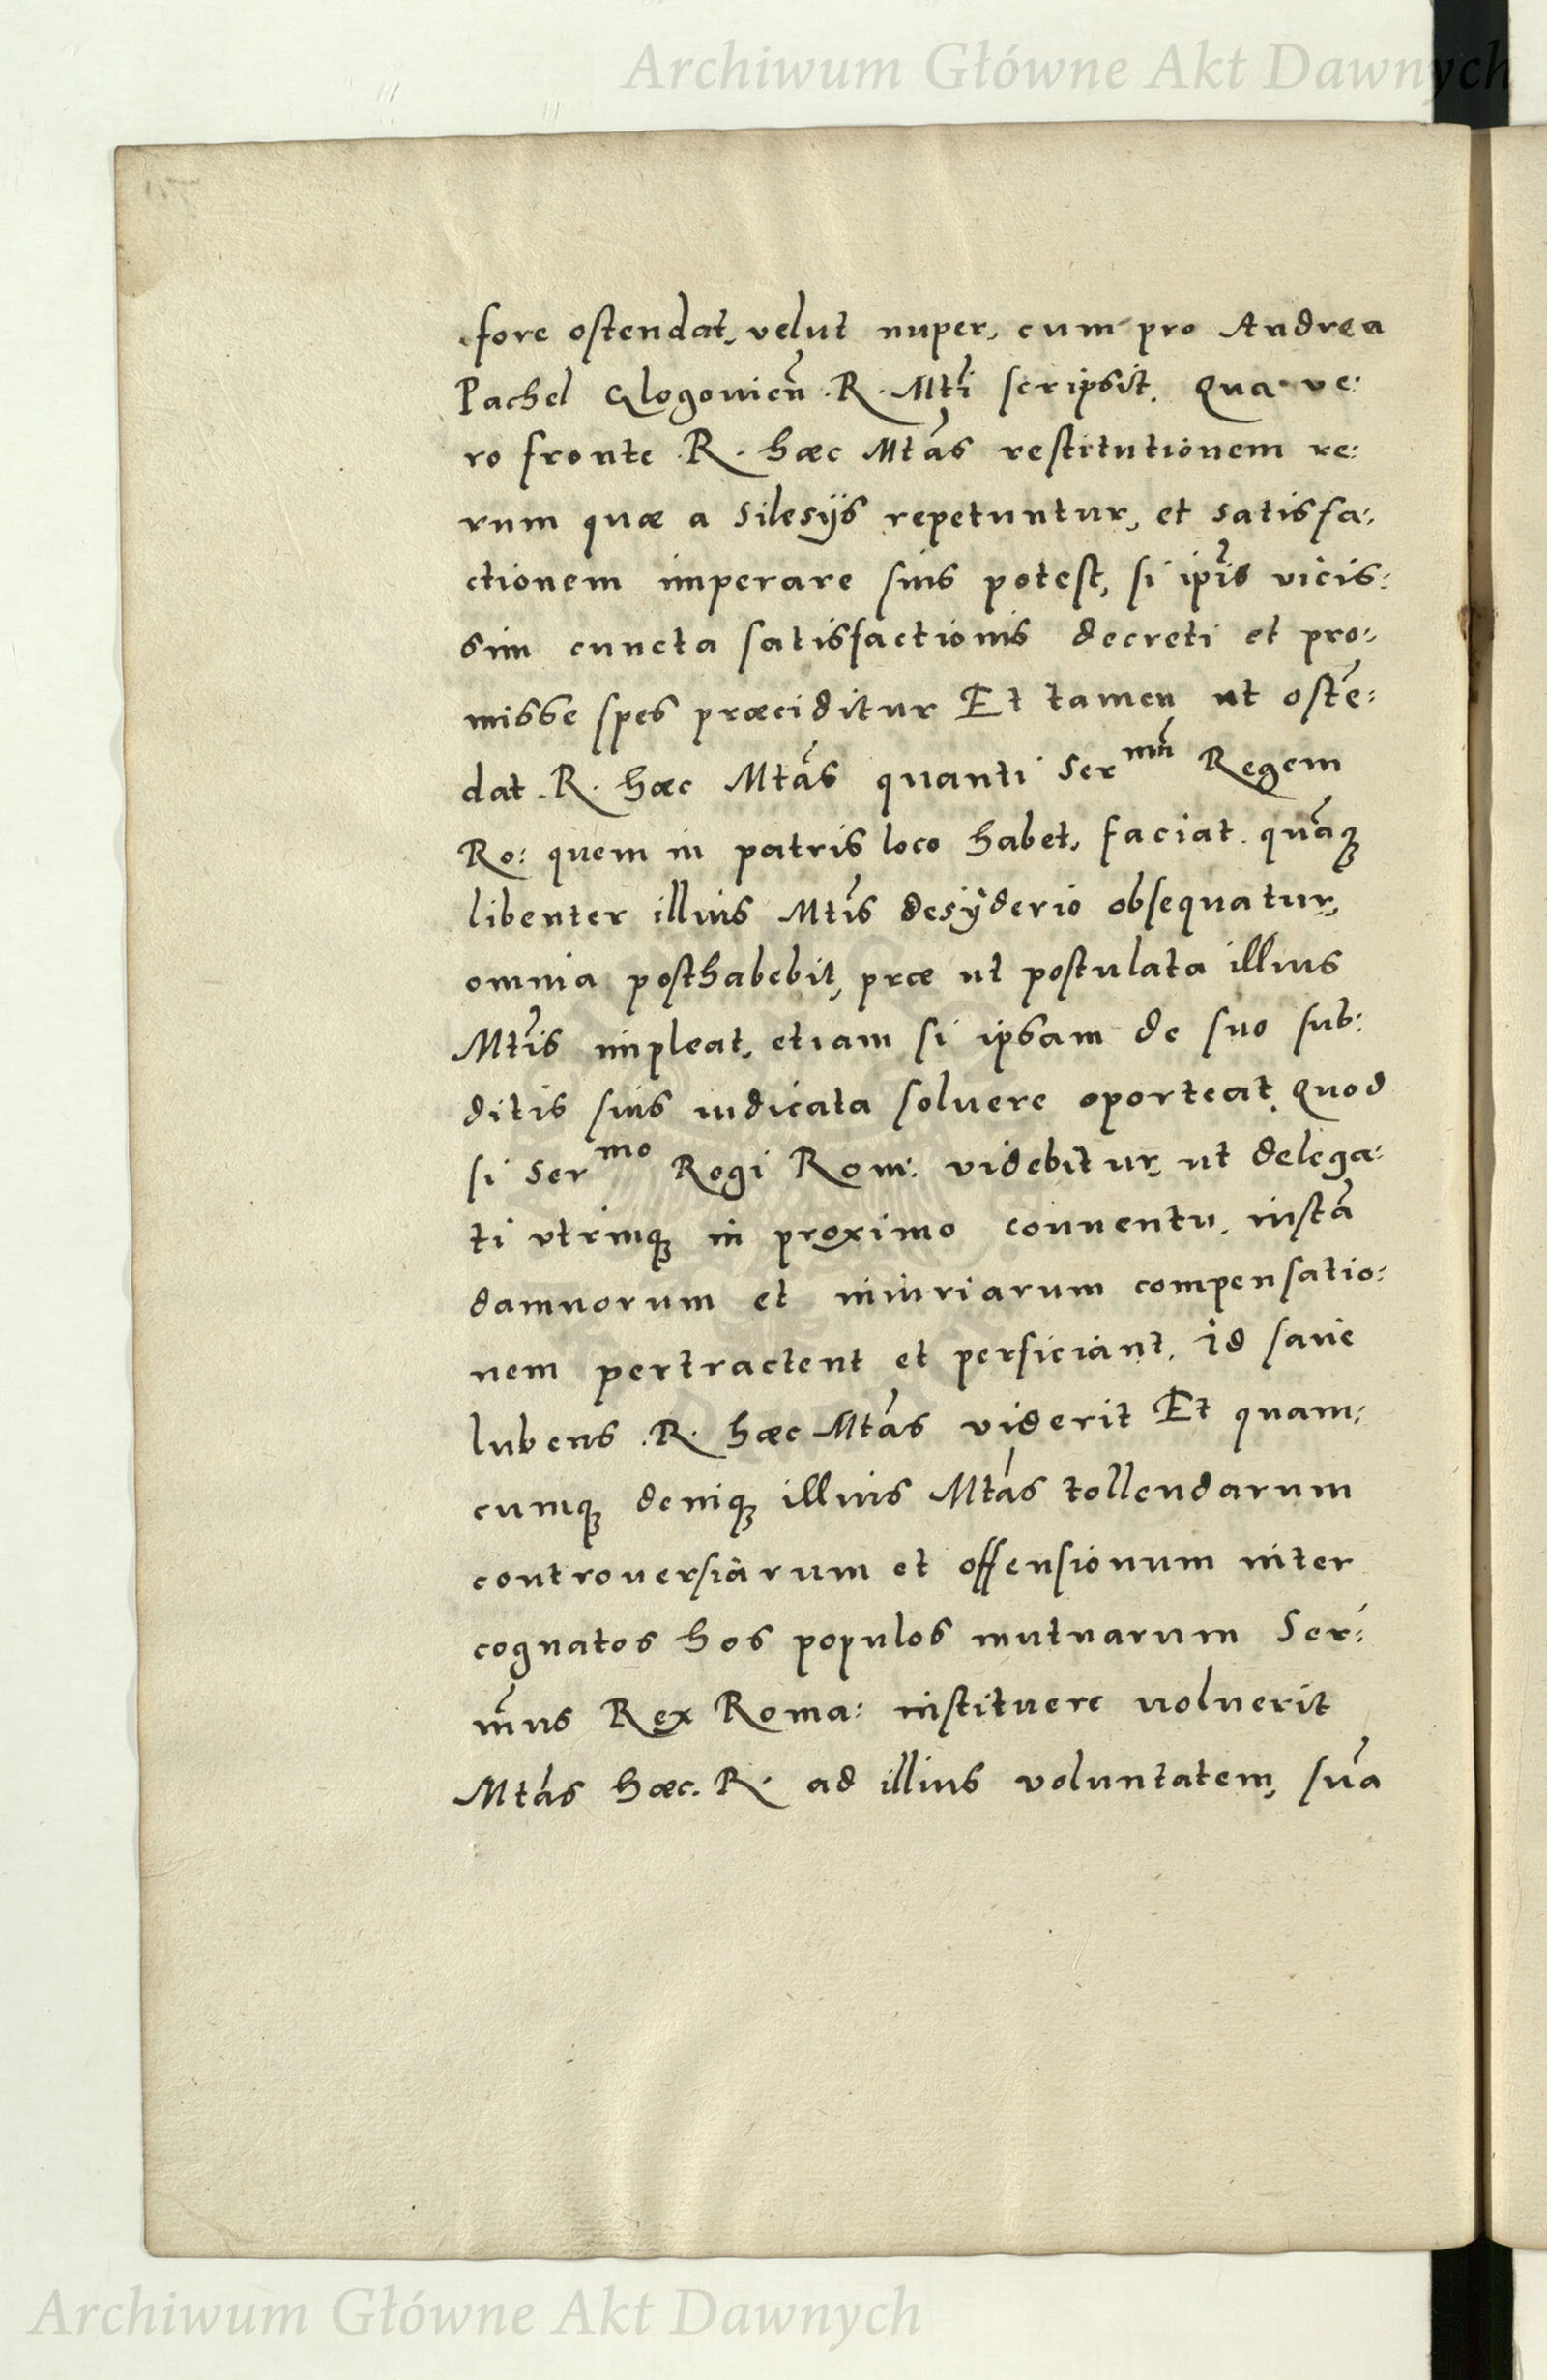 Archiwum Główne Akt Dawnych
fore ostendat, velut nuper, cum pro Andrea
Pachel Glogovień .R. Mti scripsit. Qua ve:
ro fronte .R. hæc Mtas restitutionem re:
rum quæ a Silesijs repetuntur, et satisfa:
ctionem imperare suis potest, si ipis vicis:
sim cuncta satisfactionis decreti et pro:
misse spes præciditur Et tamen ut ostē:
dat .R. hæc Mtas quanti Ser mū Regem
Ro: quem in patris loco habet, faciat. quāqꝫ
libenter illius Mtis desÿderio obsequatur,
omnia posthabebit, præ ut postulata illius
Mtis impleat, etiam si ipsam de suo sub:
ditis suis iudicata soluere oporteat. Quod
si Ser mo Regi Rom: videbitur, ut delega:
ti vtrinqꝫ in proximo conuentu, iustā
damnorum et iniuriarum compensatio:
nem pertractent et perficiant. id sane
lubens .R. hæc Mtas viderit Et quam:
cumqꝫ deniqꝫ illius Mtas tollendarum
controuersiarum et offensionum inter
cognatos hos populos mutuarum Ser:
mus Rex Roma: instituere uoluerit
Mtas hæc .R. ad illius voluntatem, suā
Archiwum Główne Akt Dawnych